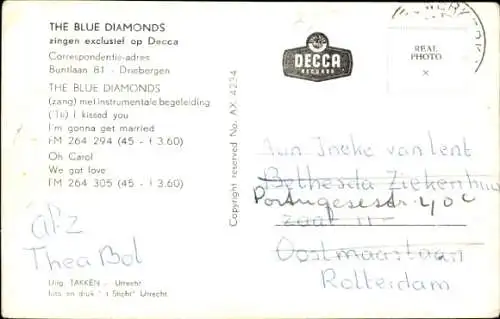 THE BLUE DIAMONDS
zingen exclusief op Decca
Correspondentie-adres
Buntlaan 81 - Driebergen
THE BLUE DIAMONDS
(zang) met instrumentale begeleiding
('Til) I kissed you
I'm gonna get married
FM 264 294 (45 - f 3.60)
Oh Carol
We got love
FM 264 305 (45 - f 3.60)
afz
Thea Bol
Uitg. TAKKEN - Utrecht
foto en druk "'t Sticht" Utrecht
Copyright reserved No. AX 4234
DECCA
RECORDS
REAL
PHOTO
×
Aan Ineke van Lent
Bethesda Ziekenhuis
Portugesestr. 40 C
zaal 11
Oostmaaslaan
Rotterdam